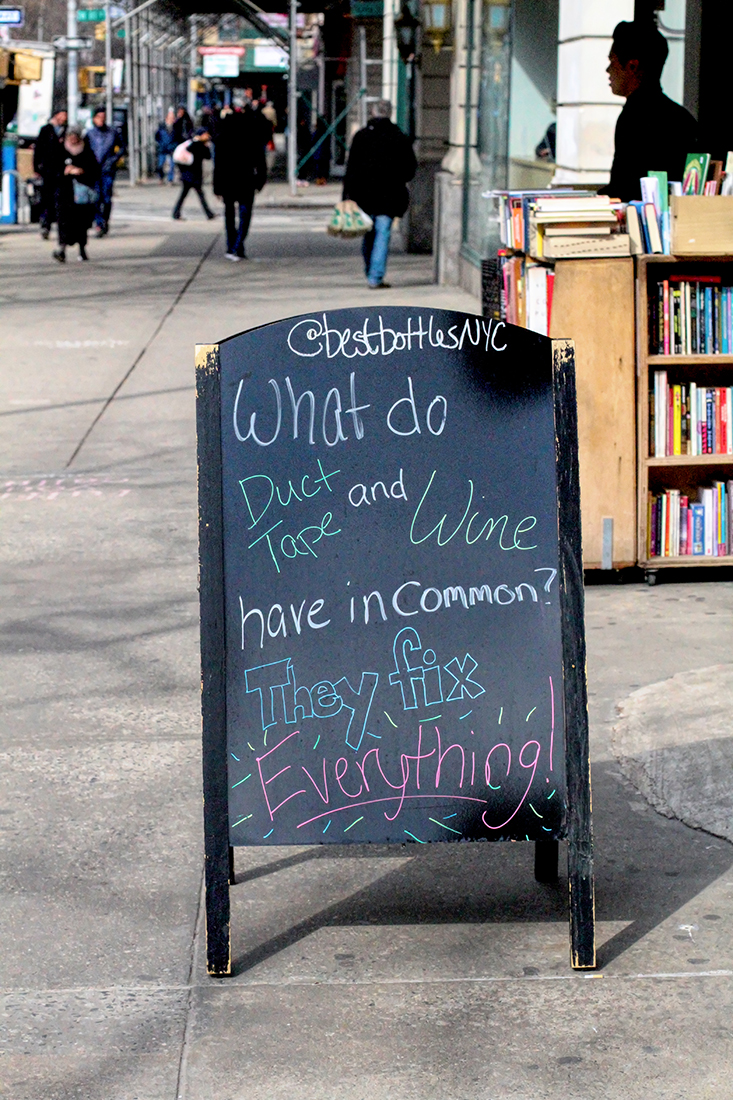 @bestbottlesNYC
What do
Duct
Tape and Wine
have in common?
They fix
Everything!